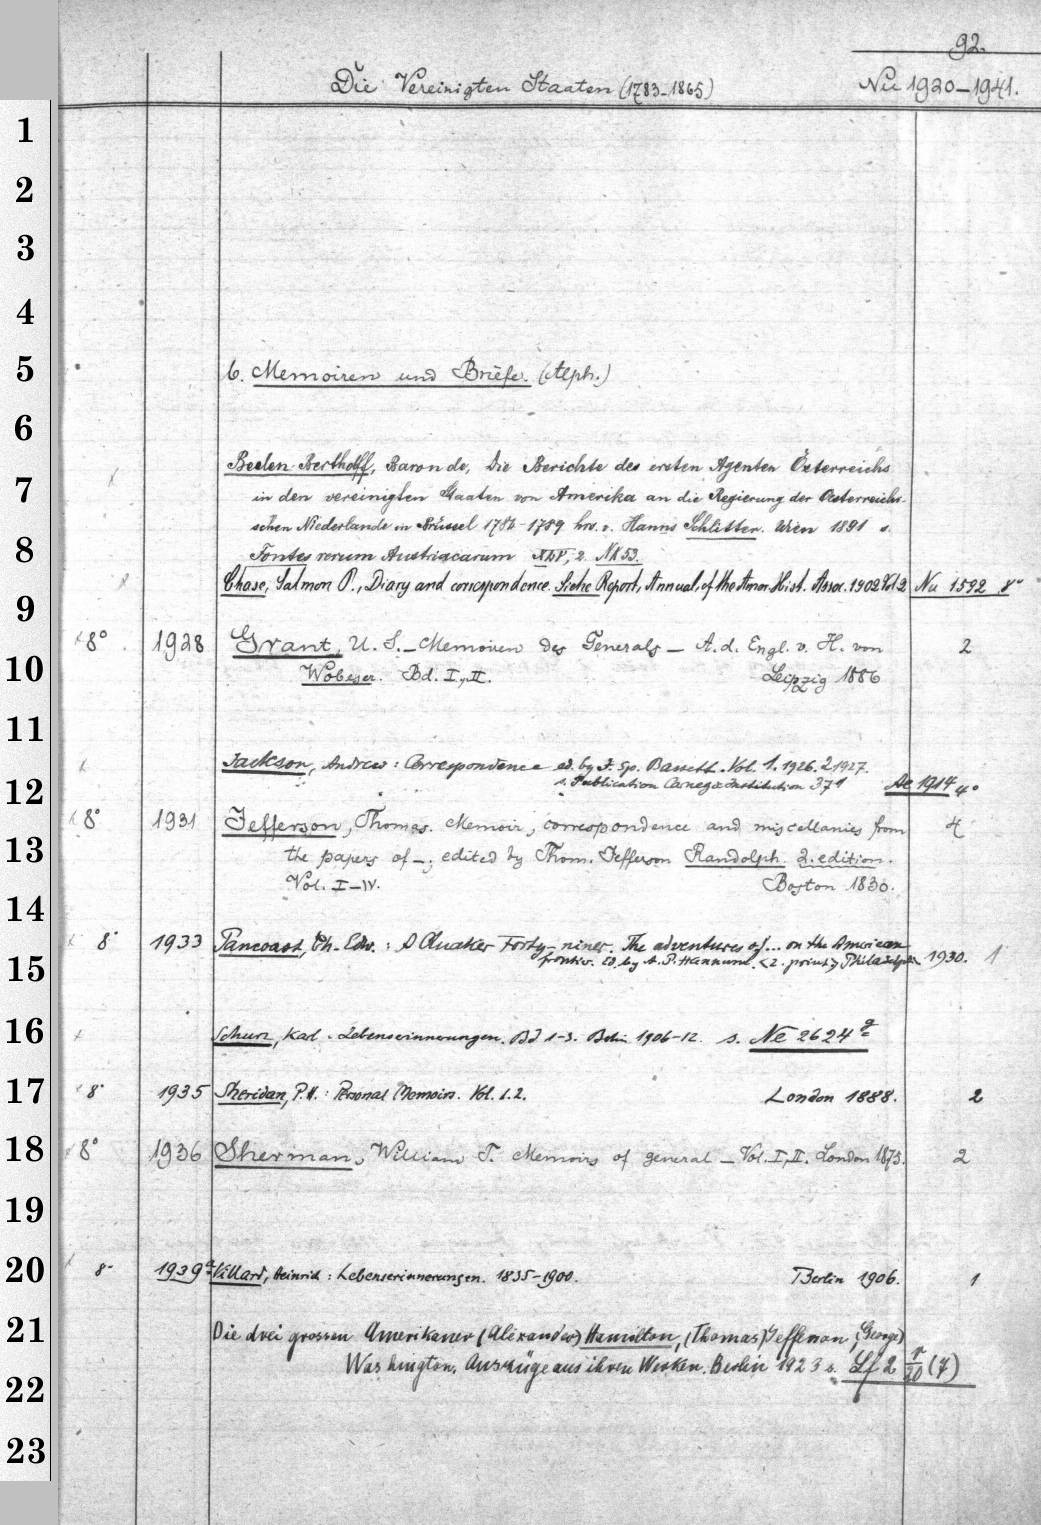 92.
Die Vereinigten Staaten (1783-1865) Nu 1920-1941.
1
2
3
4
5 b. Memoiren und Briefe. (Alph.)
6
Beelen-Bertholff, Baron de, Die Berichte des ersten Agenten Österreichs
7 in den vereinigten Staaten von Amerika an die Regierung der Oesterreichi-
schen Niederlande in Brüssel 1784-1789 hrs. v. Hanns Schlitter. Wien 1891 s.
8 Fontes rerum Austriacarum 2. NK 53.
Chase, Salmon P., Diary and correspondence. Siehe Report, Annual, of the Amer. Hist. Assoc. 1902 Vol 2 Nu 1592 8°
9
8° 1928 Grant, U. S. - Memoiren des Generals - A. d. Engl. v. H. von 2
10 Wobeser. Bd. I, II. Leipzig 1886
11
Jackson, Andrew: Correspondence ed. by J. Sp. Bassett. Vol. 1. 1926. 2. 1927.
12 s. Publication Carnegie Institution 371 Ae 1914 4°
8° 1931 Jefferson, Thomas. Memoir, correspondence and miscellanies from 4
13 the papers of -; edited by Thom. Jefferson Randolph. 2. edition.
Vol. I-IV. Boston 1830.
14
8° 1933 Pancoast, Ch. Edw.: A Quaker Forty-niner. The adventures of... on the American
15 frontier. Ed. by A. P. Hannum. <2. print> Philadelphia 1930. 1
16 Schurz, Karl. Lebenserinnerungen. Bd 1-3. Berlin 1906-12. s. Ne 2624 a
17 8° 1935 Sheridan, P. H.: Personal Memoirs. Vol. 1. 2. London 1888. 2
18 8° 1936 Sherman, William T. Memoirs of general - Vol. I, II. London 1875. 2
19
20 8° 1939 a Villard, Heinrich: Lebenserinnerungen. 1835-1900. Berlin 1906. 1
21 Die drei grossen Amerikaner (Alexander) Hamilton, (Thomas) Jefferson, (George)
22 Washington. Auszüge aus ihren Werken. Berlin 1923 s. Lf 2 r/20 (7)
23